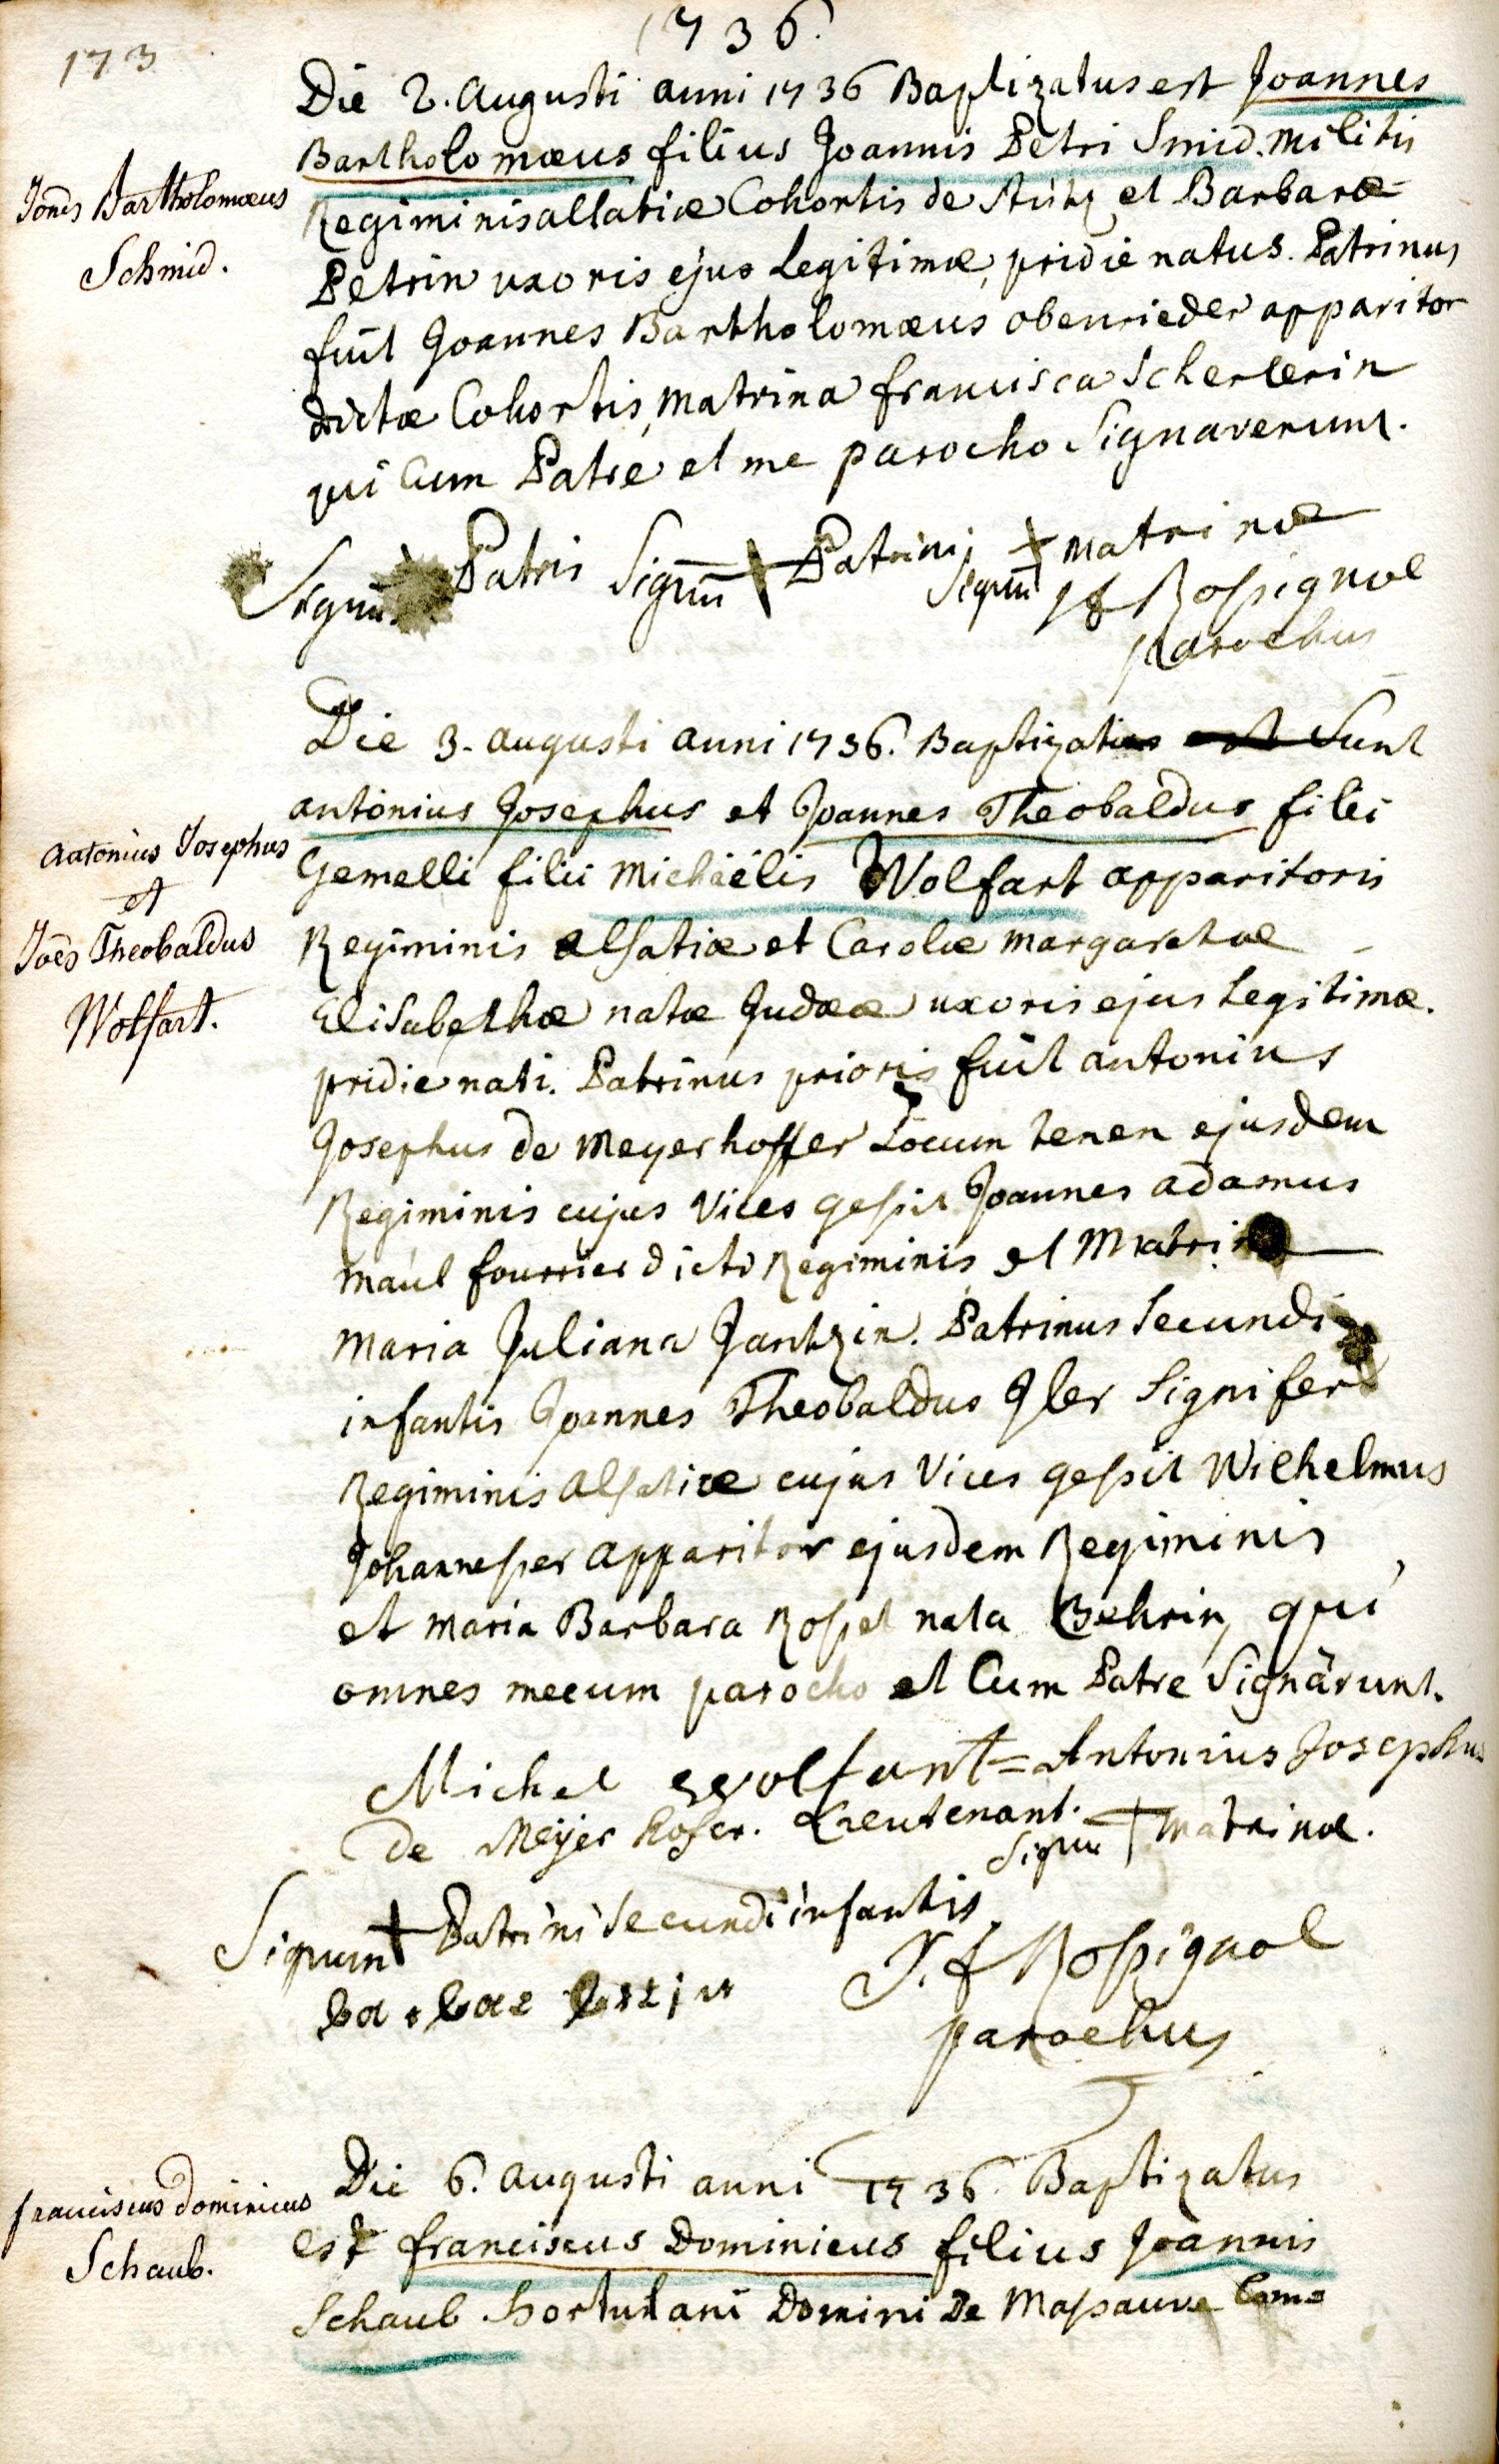 1736.
173
Die 2. Augusti anni 1736 Baptizatus est Joannes
Bartholomæus filius Joannis Petri Smid. militis
Regiminis allatiæ Cohortis de Stütz et Barbaræ
Petrin uxoris ejus Legitimæ, pridie natus. Patrinus
fuit Joannes Bartholomæus obenrieder apparitor
dictæ Cohortis, matrina francisca Scherlerin
qui Cum Patre et me parocho Signaverunt.
Joñes Bartholomæus
Schmid.
Signū Patris Signū + Patrini Signū + matrinæ
Jf Rossignol
parochus
Die 3. augusti anni 1736. Baptizati Sunt
antonius Josephus et Joannes Theobaldus filii
Gemelli filii Michäelis Wolfart apparitoris
Regiminis alsatiæ et Carolæ margarethæ
Elisabethæ natæ Judææ uxoris ejus Legitimæ.
pridie nati. Patrinus prioris fuit antonius
Josephus de Meyerhoffer Locum tenen ejusdem
Regiminis cujus Vices gessit Joannes adamus
maul fourrier dicti Regiminis et Matrina
Maria Juliana Jantzin. Patrinus Secundi
infantis Joannes Theobaldus Jler Signifer
Regiminis Alsatiæ cujus Vices gessit Wilhelmus
Johannesser apparitor ejusdem Regiminis
et maria Barbara Rossel nata Behrin, qui
omnes mecum parocho et Cum Patre Signärunt.
Antonius Josephus
et
Joēs Theobaldus
Wolfart.
Michel wolfart = Antonius Josephus
De Meÿer hofer. Lieutenant. Signū + Matrinæ.
Signum + Patrini Secundi infantis
J. f Rossignol
parochus
Die 6. augusti anni 1736. Baptizatus
est franciscus Dominicus filius Joannis
Schaub hortulani Domini De Massauve Com=
franciscus Dominicus
Schaub.